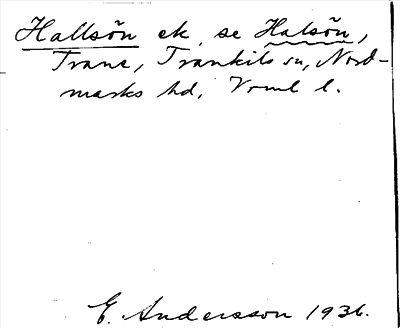 Hallsön ek, se Halsön,
Trane, Trankils sn, Nord-
marks hd, Vrml l.
E. Andersson 1936.